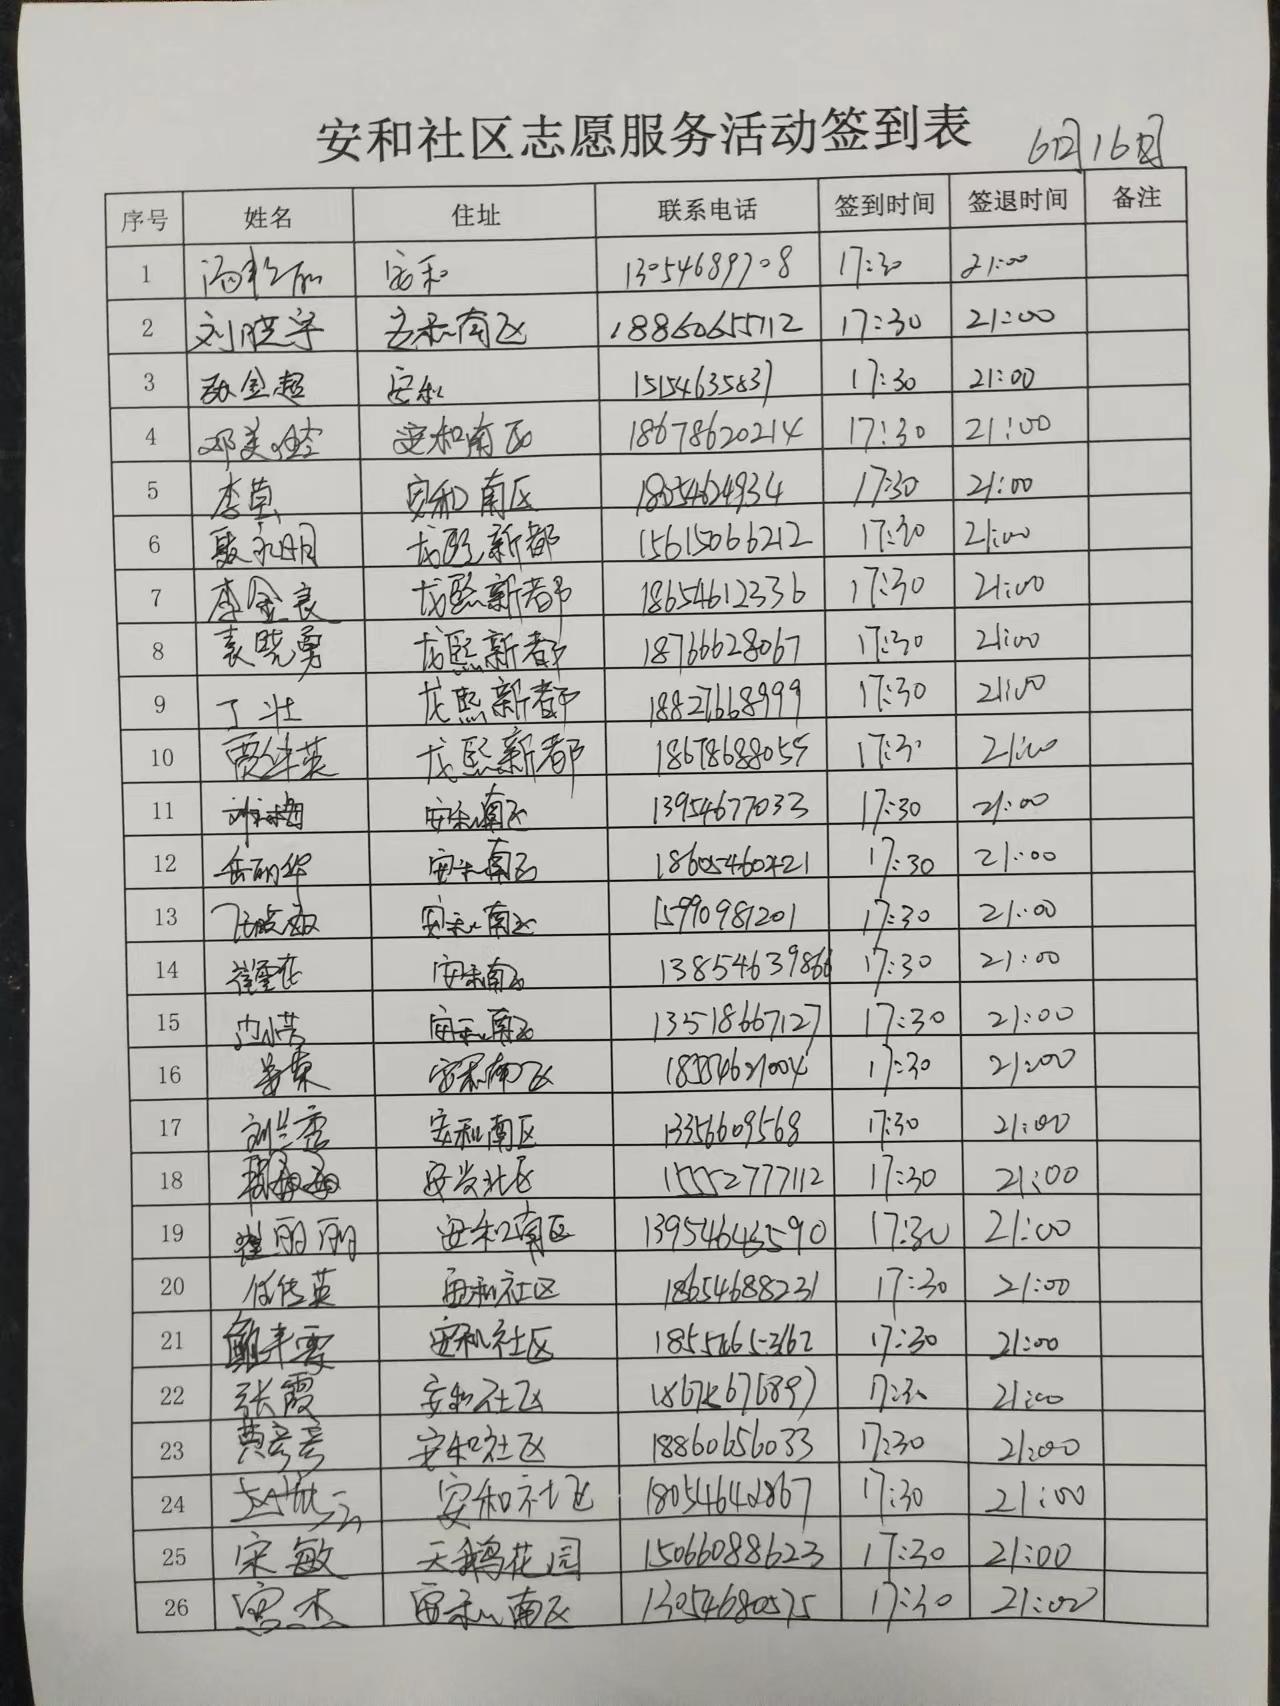 安和社区志愿服务活动签到表
6月16日
序号 姓名 住址 联系电话 签到时间 签退时间 备注
1 安和 13054689708 17:30 21:00
2 刘晓宇 安和南区 18860655112 17:30 21:00
3 孙金超 安和 15154635837 17:30 21:00
4 邓美玲 安和南区 18678620214 17:30 21:00
5 李莹 安和南区 18654624934 17:30 21:00
6 聂永明 龙熙新都 15615066212 17:30 21:00
7 李金良 龙熙新都 18654612336 17:30 21:00
8 袁晓勇 龙熙新都 18766628067 17:30 21:00
9 丁壮 龙熙新都 18827668999 17:30 21:00
10 龙熙新都 18678688055 17:30 21:00
11 安和南区 13954677033 17:30 21:00
12 岳丽华 安和南区 17:30 21:00
13 安和南区 15990981201 17:30 21:00
14 崔雪花 安和南区 13854639866 17:30 21:00
15 安和南区 13518667127 17:30 21:00
16 安和南区 17:30 21:00
17 刘兰秀 安和南区 13356609568 17:30 21:00
18 安兴北区 15552777112 17:30 21:00
19 崔丽丽 安和南区 17:30 21:00
20 任传英 安和社区 18654688231 17:30 21:00
21 安和社区 17:30 21:00
22 张霞 安和社区 17:30 21:00
23 贾彦彦 安和社区 18860656033 17:30 21:00
24 安和社区 17:30 21:00
25 宋敏 天鹅花园 15066088623 17:30 21:00
26 宫杰 安和南区 13054680575 17:30 21:00